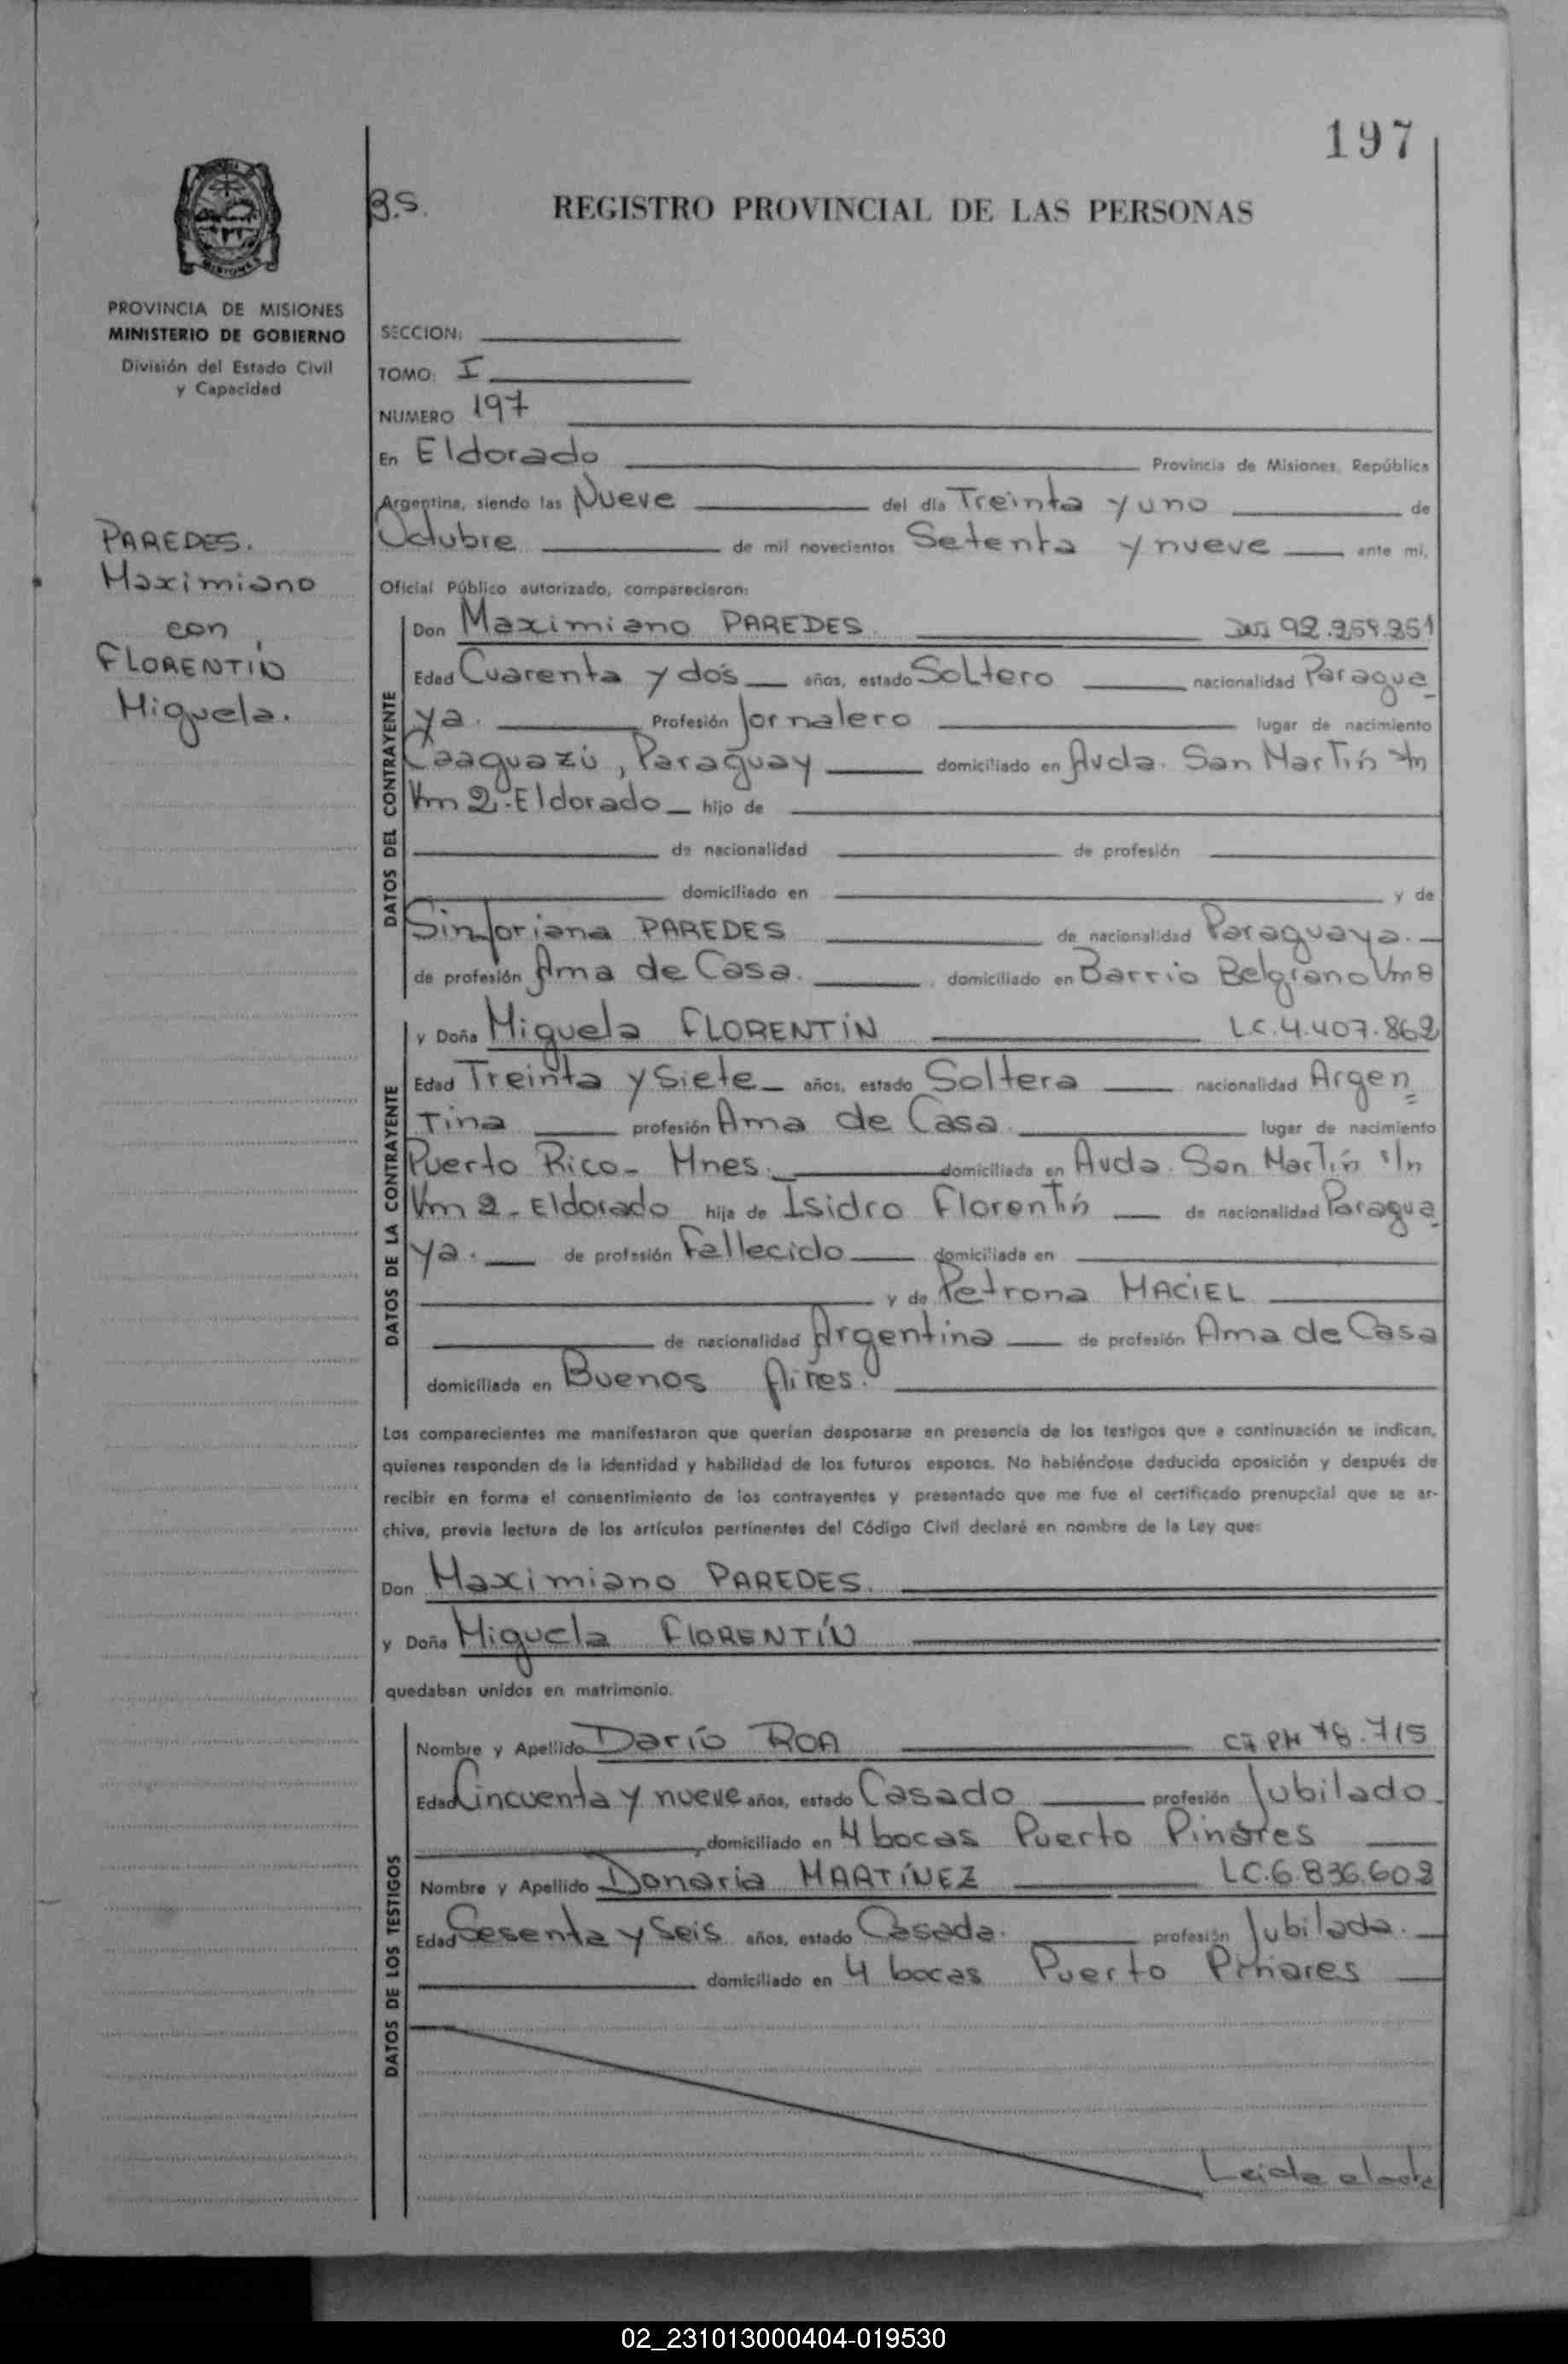 197
B.S.
REGISTRO PROVINCIAL DE LAS PERSONAS
MISIONES
PROVINCIA DE MISIONES
MINISTERIO DE GOBIERNO
División del Estado Civil
y Capacidad
PAREDES.
Maximiano
con
FLORENTIN
Miguela.
SECCION:
TOMO: I
NUMERO 197
En Eldorado Provincia de Misiones, República
Argentina, siendo las Nueve del día Treinta y uno de
Octubre de mil novecientos Setenta y nueve ante mí,
Oficial Público autorizado, comparecieron:
DATOS DEL CONTRAYENTE
Don Maximiano PAREDES. DNI 92.259.251
Edad Cuarenta y dos años, estado Soltero nacionalidad Paragua
ya. Profesión Jornalero lugar de nacimiento
Caaguazú, Paraguay domiciliado en Avda. San Martín s/n
Km 2-Eldorado hijo de
de nacionalidad de profesión
domiciliado en y de
Sinforiana PAREDES de nacionalidad Paraguaya.
de profesión Ama de Casa. domiciliado en Barrio Belgrano Km 8
DATOS DE LA CONTRAYENTE
y Doña Miguela FLORENTÍN L.C.4.407.862
Edad Treinta y Siete años, estado Soltera nacionalidad Argen
Tina profesión Ama de Casa. lugar de nacimiento
Puerto Rico- Mnes. domiciliada en Avda. San Martín s/n
Km 2- Eldorado hija de Isidro Florentín de nacionalidad Paragua
ya. de profesión Fallecido domiciliada en
y de Petrona MACIEL
de nacionalidad Argentina de profesión Ama de Casa
domiciliada en Buenos Aires.
Los comparecientes me manifestaron que querían desposarse en presencia de los testigos que a continuación se indican,
quienes responden de la identidad y habilidad de los futuros esposos. No habiéndose deducido oposición y después de
recibir en forma el consentimiento de los contrayentes y presentado que me fue el certificado prenupcial que se ar-
chiva, previa lectura de los artículos pertinentes del Código Civil declaré en nombre de la Ley que:
Don Maximiano PAREDES.
y Doña Miguela FLORENTÍN
quedaban unidos en matrimonio.
DATOS DE LOS TESTIGOS
Nombre y Apellido Darío ROA CI PM 78.715
Edad Cincuenta y nueve años, estado Casado profesión Jubilado.
domiciliado en 4 bocas Puerto Pinares
Nombre y Apellido Donaria MARTÍNEZ LC.6.836.602
Edad Sesenta y Seis años, estado Casada. profesión Jubilada.
domiciliado en 4 bocas Puerto Pinares
Leida el acta
02_231013000404-019530